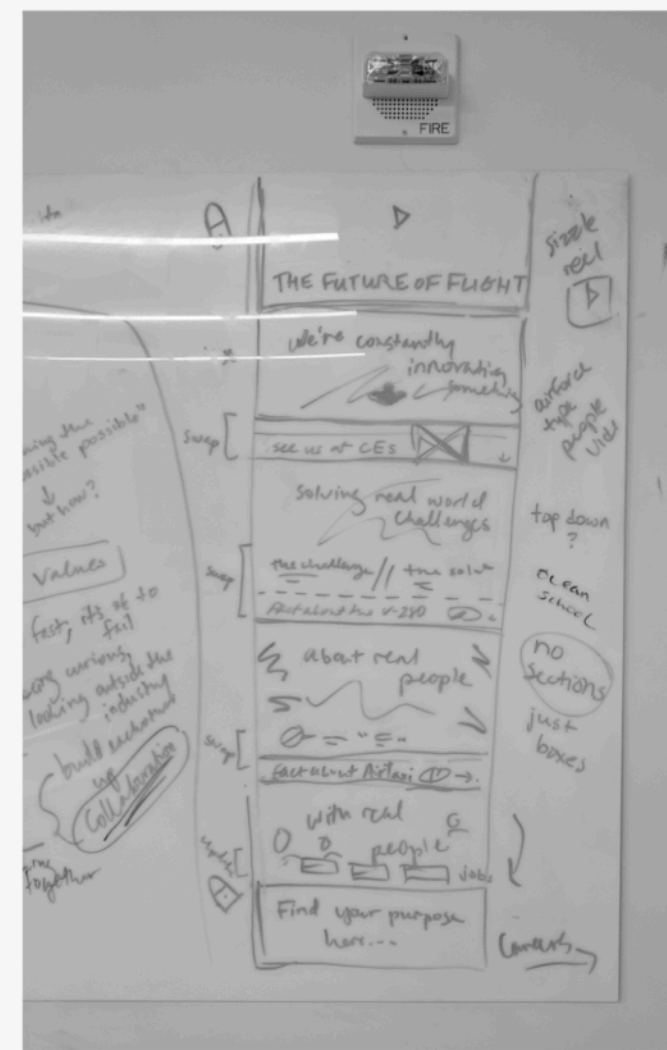 FIRE
THE FUTURE OF FLIGHT
we're constantly
innovating
something
swap
see us at CES
solving real world
challenges
swap
the challenge // the solut
fact about the V-280
about real
people
swap
fact about AirTaxi
with real
people
jobs
Find your purpose
here...
sizzle
reel
airforce
type
people
vids
top down
?
ocean
school
no
sections
just
boxes
Careers
ning the
ssible possible"
but how?
values
fast, its ok to
fail
curious,
looking outside the
industry
build eachother
up
Collaboration
together